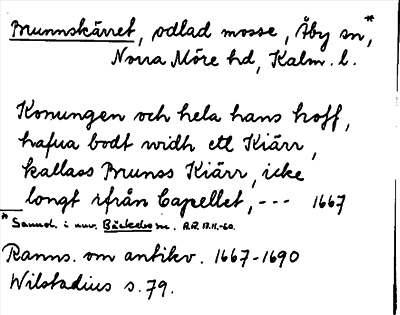 Brunnskärret, odlad mosse, Åby sn*,
Norra Möre hd, Kalm. l.
Konungen och hela hans hoff,
hafua bodt widh ett Kiärr,
kallass Brunss Kiärr, icke
longt ifrån Capellet, --- 1667
* Sannol. i nuv. Bäckebo sn. R.R. 17.11.-60.
Ranns. om antikv. 1667-1690
Wilstadius s. 79.